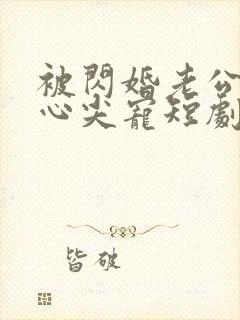 被閃婚老公
心尖寵短劇
皆破